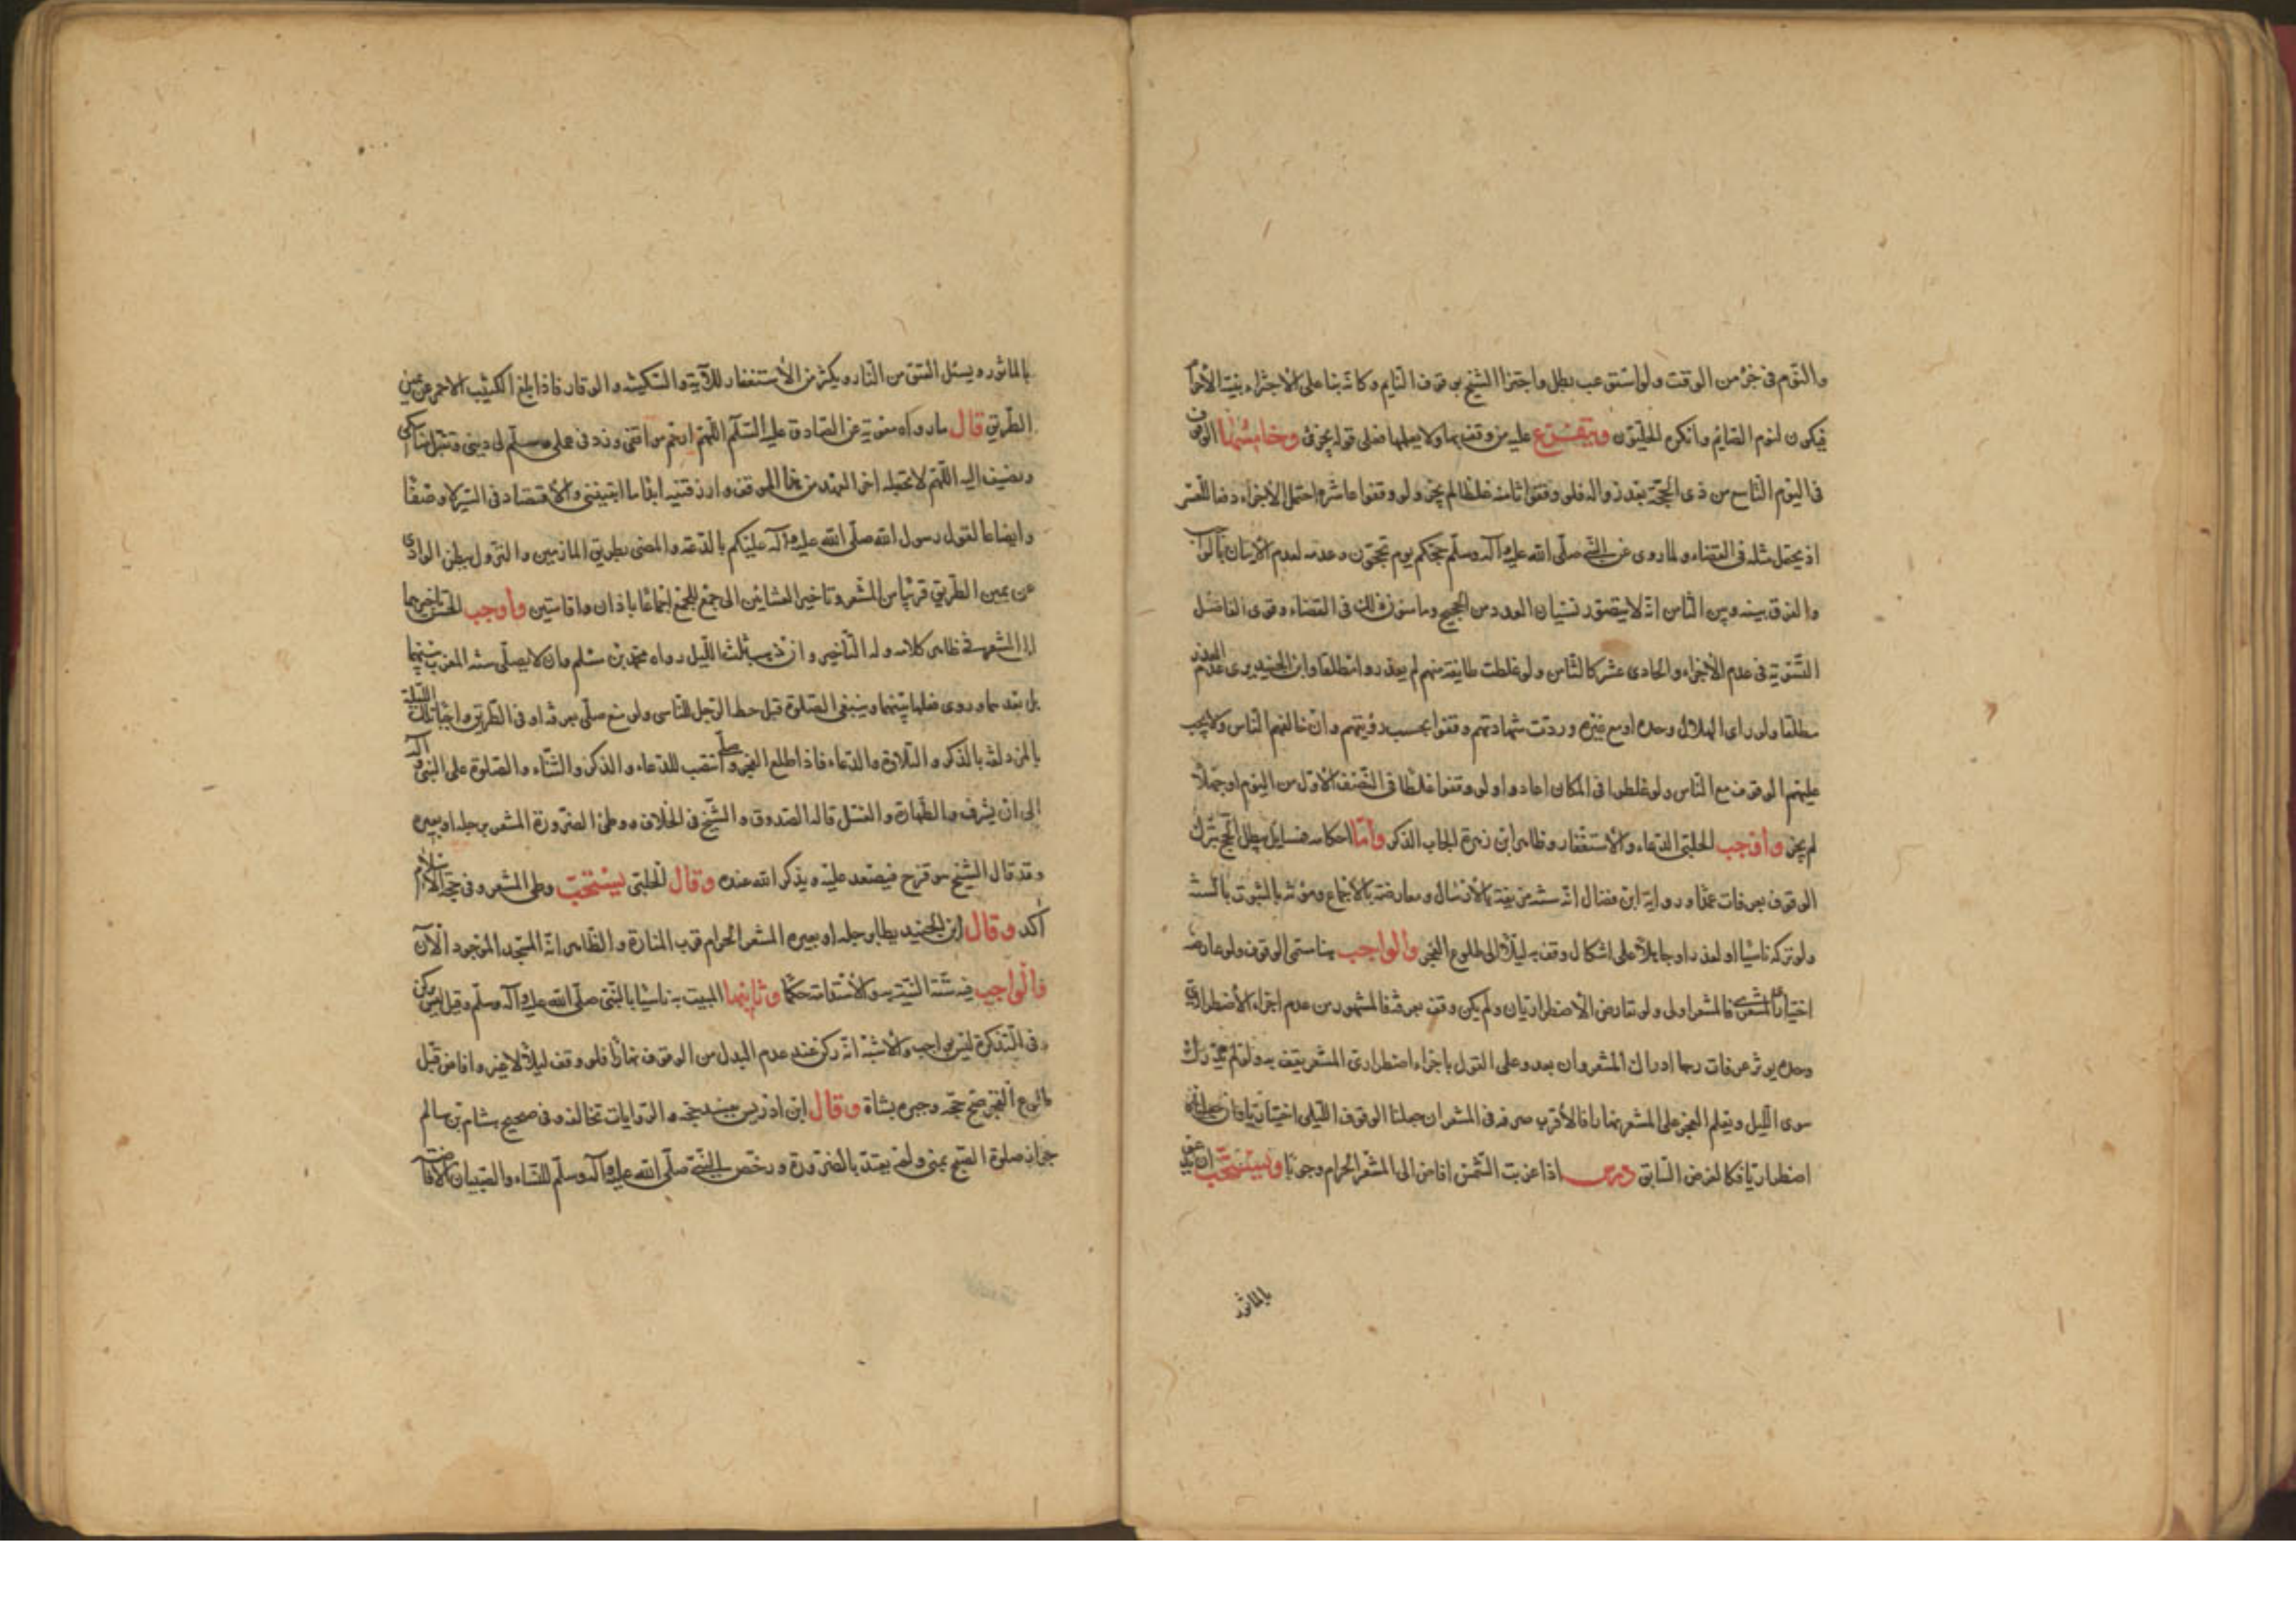 والنوم في جزء من الوقت ولو استوعب بطل واجتزأ الشيخ بوقوف النايم وكانه بنا على الاجتزاء بنية الاحرام
فيكون كنوم الصايم وانكره الحليون ويتفرع عليه من وقف بها ولا يعلمها فعلى قوله يجزي وخامسها الوقوف
في اليوم التاسع من ذي الحجة بعد زواله فلو وقفوا ثامنه غلطا لم يجز ولو وقفوا عاشره احتمل الاجزاء دفعا للعسر
اذ يحتمل مثله في القضاء ولما روى عن النبي صلى الله عليه وآله وسلم حجكم يوم تحجون وعدمه لعدم الاتيان بالواجب
والفرق بينه وبين الثامن انه لا يتصور نسيان العدد من الحجيج وما سنوا ذلك في القضاء وقوى الفاضل
التسوية في عدم الاجزاء والحادي عشر كالثامن ولو غلطت طايفة منهم لم يعذروا مطلقا وابن الجنيد يرى عدم العذر
مطلقا ولو راى الهلال وحده او مع غيره وردت شهادتهم وقفوا بحسب رؤيتهم وان خالفهم الناس ولا يجب
عليهم الوقوف مع الناس ولو غلطوا في المكان اعادوا ولو وقفوا غلطا في النصف الاول من اليوم او جهلا
لم يجز واوجب الحلبي الدعاء والاستغفار وظاهر ابن زهرة ايجاب الذكر واما احكامه فمسايل يبطل الحج بترك
الوقوف بعرفات عمدا ورواية ابن فضال انه سنة مزيفة بالارسال ومعارضة بالاجماع ومؤولة بالثبوت بالسنة
ولو تركه ناسيا او لعذر او جاهلا على اشكال وقف به ليلا الى طلوع الفجر والواجب هنا مسمى الوقوف ولو عارضه
اختياري المشعر فالمشعر اولى ولو تعارض الاضطراريان ولم يكن وقف بعرفة فالمشهور من عدم اجزاء الاضطراري
وحده يؤثر عرفات رجا ادراك المشعر وان بعد وعلى القول باجزاء اضطراري المشعر يقف به ولو لم يدرك
سوى الليل ويعلم العجز على المشعر نهارا فالاقرب صرفه في المشعر ان جعلنا الوقوف الليلي اختياريا فان جعلناه
اضطراريا فكالفرض السابق درس اذا غربت الشمس افاض الى المشعر الحرام وجوبا ويستحب ان
بالماثور
بالماثور ويسئل العتق من النار ويكثر من الاستغفار للآية والسكينة والوقار فاذا بلغ الكثيب الاحمر عن يمين
الطريق قال ما رواه معوية عن الصادق عليه السلام اللهم ارحم موقفي وزد في عملي وسلم لي ديني وتقبل مناسكي
ويضيف اليه اللهم لا تجعله اخر العهد من هذا الموقف وارزقنيه ابدا ما ابقيتني والاقتصاد في السير
وايضاعا لقول رسول الله صلى الله عليه وآله عليكم بالدعة والمضي بطريق المازمين والنزول ببطن الوادي
عن يمين الطريق قريبا من المشعر وتاخير العشائين الى جمع للجمع اجماعا باذان واقامتين واوجب الحسن تاخيرهما
الى المشعر في ظاهر كلامه وله التاخير وان ذهب ثلث الليل رواه محمد بن مسلم وان لا يصلي سنة المغرب بينهما
بل بعدهما وروى فعلها بينهما وينبغي الصلوة قبل حط الرحل للتاسي ولو منع صلى بعرفة او في الطريق واحياء تلك الليلة
بالمزدلفة بالذكر والتلاوة والدعاء فاذا طلع الفجر وصلى انتصب للدعاء والذكر والثناء والصلوة على النبي وآله
الى ان يشرف والطهارة والغسل قاله الصدوق والشيخ في الخلاف ووطئ الصرورة المشعر برجله او بعيره
وقد قال الشيخ هو قزح فيصعد عليه ويذكر الله عنده وقال الحلبي يستحب وطئ المشعر وفي حجة الاسلام
آكد وقال ابن الجنيد يطا برجله او بعيره المشعر الحرام قرب المنارة والظاهر انه المسجد الموجود الآن
فالواجب فيه ستة النية والاستدامة حكما وثانيها المبيت به تاسيا بالنبي صلى الله عليه وآله وسلم وقيل ليس بركن
وفي التذكرة ليس بواجب والاشبه انه ركن عند عدم البدل من الوقوف نهارا فلو وقف ليلا لا غير وافاض قبل
طلوع الفجر صح حجه وجبره بشاة وقال ابن ادريس يفسد حجه والروايات تخالفه وفي صحيح هشام بن سالم
جواز صلوة الصبح بمنى ولم يقيد بالضرورة ورخص النبي صلى الله عليه وآله وسلم للنساء والصبيان الافاضة